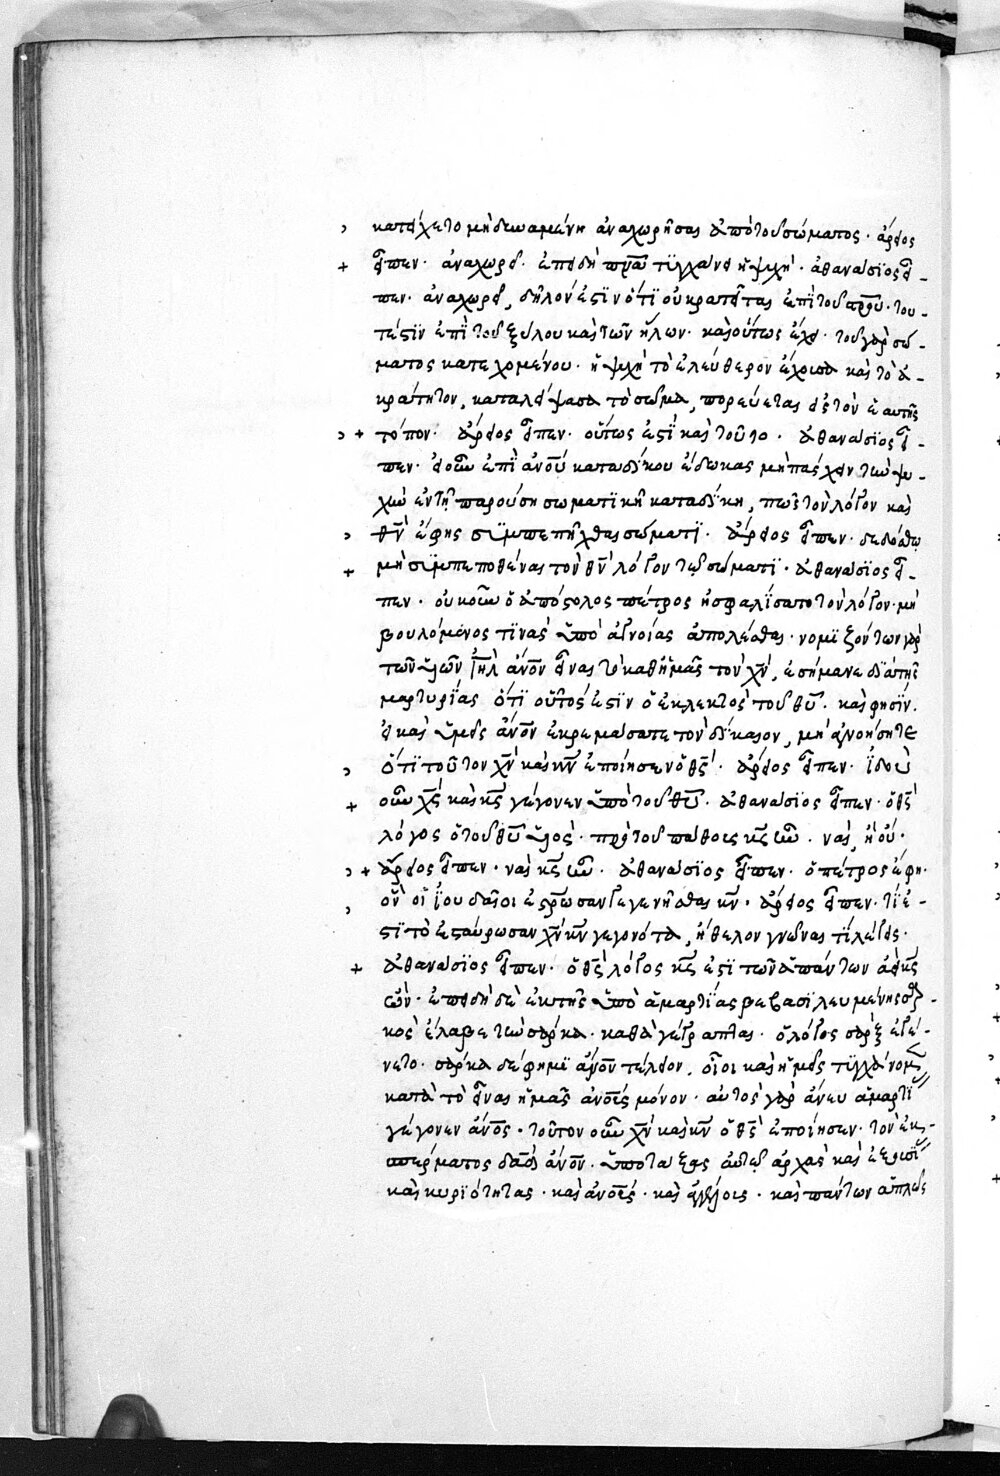 κατείχετο μὴ δυναμένη ἀναχωρῆσαι ἀπὸ τοῦ σώματος · ἄρειος
+ εἶπεν · ἀναχωρεῖ · ἐπειδὴ πνᾶ τϊγχάνει ἡ ψυχή · ἀθανάσϊος εἶ-
πεν · ἀναχωρεῖ, δῆλον ἐστϊν ὅτϊ οὐ κρατεῖται ἐπὶ τοῦ στρου · του-
τέστϊν ἐπὶ τοῦ ξύλου καὶ τῶν ἥλων · καὶ οὕτως ἔχει · τοῦ γὰρ σώ-
ματος κατεχομένου · ἡ ψυχὴ τὸ ἐλεύθερον ἔχουσα καὶ τὸ ἀ-
κράτητον, καταλείψασα τὸ σῶμα, πορεύεται εἰς τὸν ἑαυτῆς
+ τόπον · ἄρειος εἶπεν · οὕτως ἐστϊ καὶ τοῦτο · ἀθανάσϊος εἶ-
πεν · εἰ οὖν ἐπὶ ἀνοῦ καταδίκου ἔδωκας μὴ πάσχειν τὴν ψυ-
χὴν ἐν τῇ παρούσῃ σωματϊκῇ καταδίκῃ, πῶς τὸν λόγον καὶ
θν ἔφης σϊμπεπῆχθαι σώματϊ · ἄρειος εἶπεν · δεδόσθω
+ μὴ σϊμπεπονθέναι τὸν θν λόγον τῷ σώματϊ · ἀθανάσϊος εἶ-
πεν · οὐκοῦν ὁ ἀπόστολος πέτρος ἠσφαλίσατο τὸν λόγον · μὴ
βουλόμενος τϊνὰς ὑπὸ ἀγνοίας ἀπολέσθαι · νομϊζόντων γὰρ
τῶν υἱῶν ιηλ ἄνον εἶναι τὸ καθ' ἡμᾶς τὸν χν, ἐσήμανε δϊὰ τῆς
μαρτυρίας ὅτϊ οὗτός ἐστϊν ὁ ἐκλεκτὸς τοῦ θυ · καὶ φησίν ·
εἰ καὶ ὑμεῖς ἄνον ἐκρεμάσατε τὸν δίκαιον, μὴ ἀγνοήσητε
ὅτϊ τοῦτον χν καὶ κν ἐποίησεν ὁ θς · ἄρειος εἶπεν · ἰδοὺ
+ οὖν χς καὶ κς γέγονεν ὑπὸ τοῦ θυ · ἀθανάσϊος εἶπεν · ὁ θς
λόγος ὁ τοῦ θυ υἱὸς · πρὸ τοῦ πάθους κς ὢν · ναὶ, ἢ οὔ ·
+ ἄρειος εἶπεν · ναὶ κς ὢν · ἀθανάσϊος εἶπεν · ὁ πέτρος ἔφη ·
ὃν οἱ ἰουδαῖοι ἐστρωσαν γεγενῆσθαι κν · ἄρειος εἶπεν · τί ἐ-
στϊ τὸ ἐσταύρωσαν χν κν γεγονότα, ἤθελον γνῶναι τί λέγεις ·
+ ἀθανάσϊος εἶπεν · ὁ θς λόγος κς ἐστϊ τῶν ἁπάντων ἀεὶ κς
ὤν · ἐπειδὴ δὲ ἐκ τῆς ὑπὸ ἁμαρτίας βεβασϊλευμένης σαρ-
κὸς ἔλαβε τὴν σάρκα · καθὰ γέγραπται · ὁ λόγος σὰρξ ἐγέ-
νετο · σάρκα δέ φημϊ ἄνον τέλειον, οἷοι καὶ ἡμεῖς τϊγχάνομεν
κατὰ τὸ εἶναι ἡμᾶς ἀνους μόνον · αὐτὸς γὰρ ἄνευ ἁμαρτϊ
γέγονεν ἄνος · τοῦτον οὖν χν καὶ κν ὁ θς ἐποίησεν · τὸν ἐκ
σπέρματος δαδ ἄνον · ὑποτάξας αὐτῷ ἀρχὰς καὶ ἐξουσϊ
καὶ κυρϊότητας · καὶ ἀνους · καὶ ἀγγέλοις · καὶ πάντων ἁπλῶς